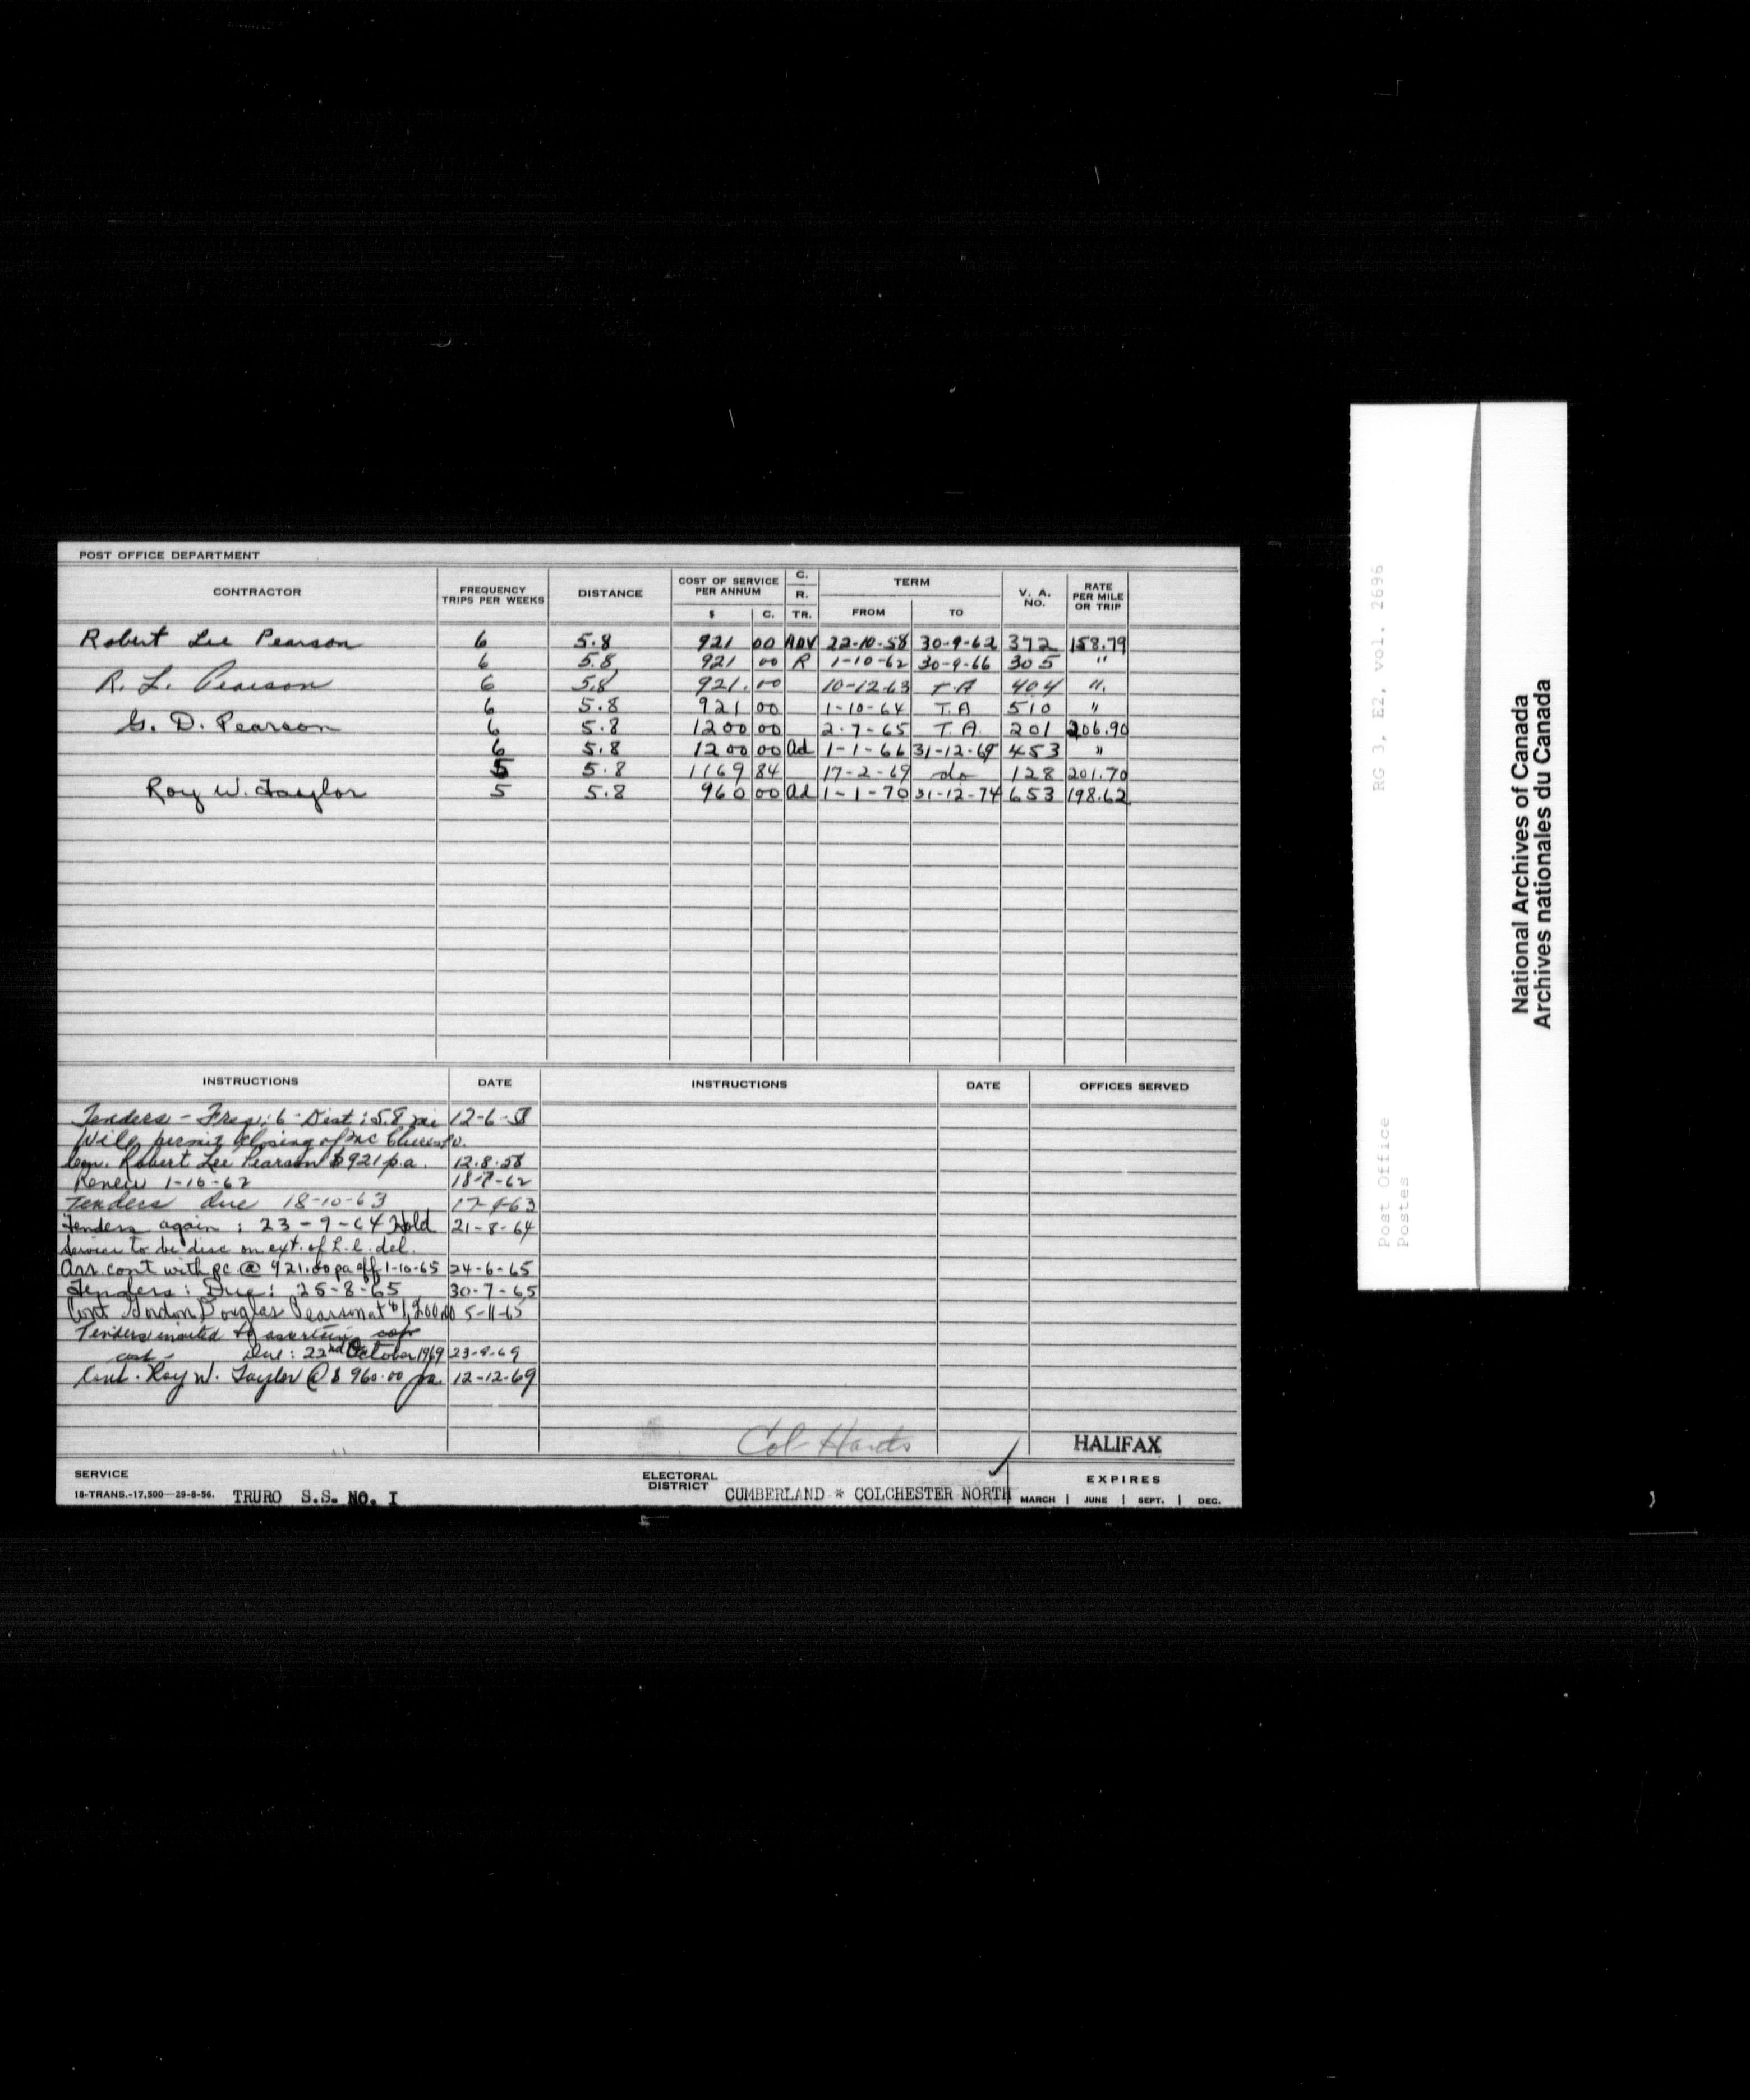 POST OFFICE DEPARTMENT
CONTRACTOR FREQUENCY TRIPS PER WEEKS DISTANCE COST OF SERVICE PER ANNUM $ C. C. R. TR. TERM FROM TO V. A. NO. RATE PER MILE OR TRIP
Robert Lee Pearson 6 5.8 921 00 ADV 22-10-58 30-9-62 372 158.79
6 5.8 921 00 R 1-10-62 30-9-66 305 "
R. L. Pearson 6 5.8 921.00 10-12-63 T.A 404 ".
6 5.8 921 00 1-10-64 T.A 510 "
G. D. Pearson 6 5.8 1200 00 2-7-65 T.A. 201 206.90
6 5.8 1200 00 Ad 1-1-66 31-12-69 453 "
5 5.8 1169 84 17-2-69 do 128 201.70
Roy W. Taylor 5 5.8 960 00 Ad 1-1-70 31-12-74 653 198.62
INSTRUCTIONS DATE INSTRUCTIONS DATE OFFICES SERVED
Tenders - Freq: 6 - Dist: 5.8 mi 12-6-58
Will permit closing of
Robert Lee Pearson $921 p.a. 12.8.58
Renew 1-10-62 18-7-62
Tenders due 18-10-63 17-9-63
Tenders again: 23-9-64 Hold 21-8-64
Service to be disc on ext. of L.C. del.
Arr. cont with pc @ 921.00 pa eff 1-10-65 24-6-65
Tenders: Due: 25-8-65 30-7-65
Cont Gordon Douglas Pearson at $1,200.00 5-11-65
Tenders invited to ascertain
cost - Due: 22nd October 1969 23-9-69
Cont. Roy W. Taylor @ $960.00 pa. 12-12-69
Col-Hants
HALIFAX
SERVICE ELECTORAL DISTRICT EXPIRES
18-TRANS.-17,500-29-8-56. TRURO S.S. NO. I CUMBERLAND * COLCHESTER NORTH MARCH | JUNE | SEPT. | DEC.
RG 3, E2, vol. 2696
Post Office
Postes
National Archives of Canada
Archives nationales du Canada